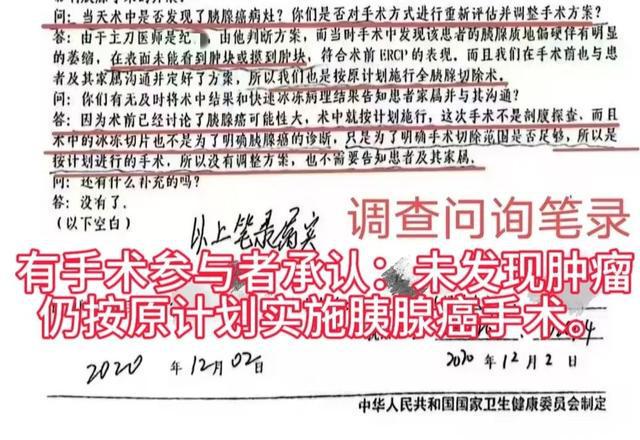 问：当天术中是否发现了胰腺癌病灶？你们是否对手术方式进行重新评估并调整手术方案？
答：由于主刀医师是纪 由他判断方案，而当时手术中发现该患者的胰腺质地偏硬伴有明显
的萎缩，在表面未能看到肿块或摸到肿块，符合术前ERCP的表现，而且我们在手术前也与患
者及其家属沟通并定好了方案，所以我们也是按原计划施行全胰腺切除术。
问：你们有无及时将术中结果和快速冰冻病理结果告知患者家属并与其沟通？
答：因为术前已经讨论了胰腺癌可能性大，术中就按计划施行，这次手术不是剖腹探查，而且
术中的冰冻切片也不是为了明确胰腺癌的诊断，只是为了明确手术切除范围是否足够，所以是
按计划进行的手术，所以没有调整方案，也不需要告知患者及其家属。
问：还有什么补充的吗？
答：没有了。
（以下空白）
以上笔录属实
调查问询笔录
有手术参与者承认：未发现肿瘤
仍按原计划实施胰腺癌手术。
2020 年 12月 02日
2020 年 12 月 2 日
中华人民共和国国家卫生健康委员会制定